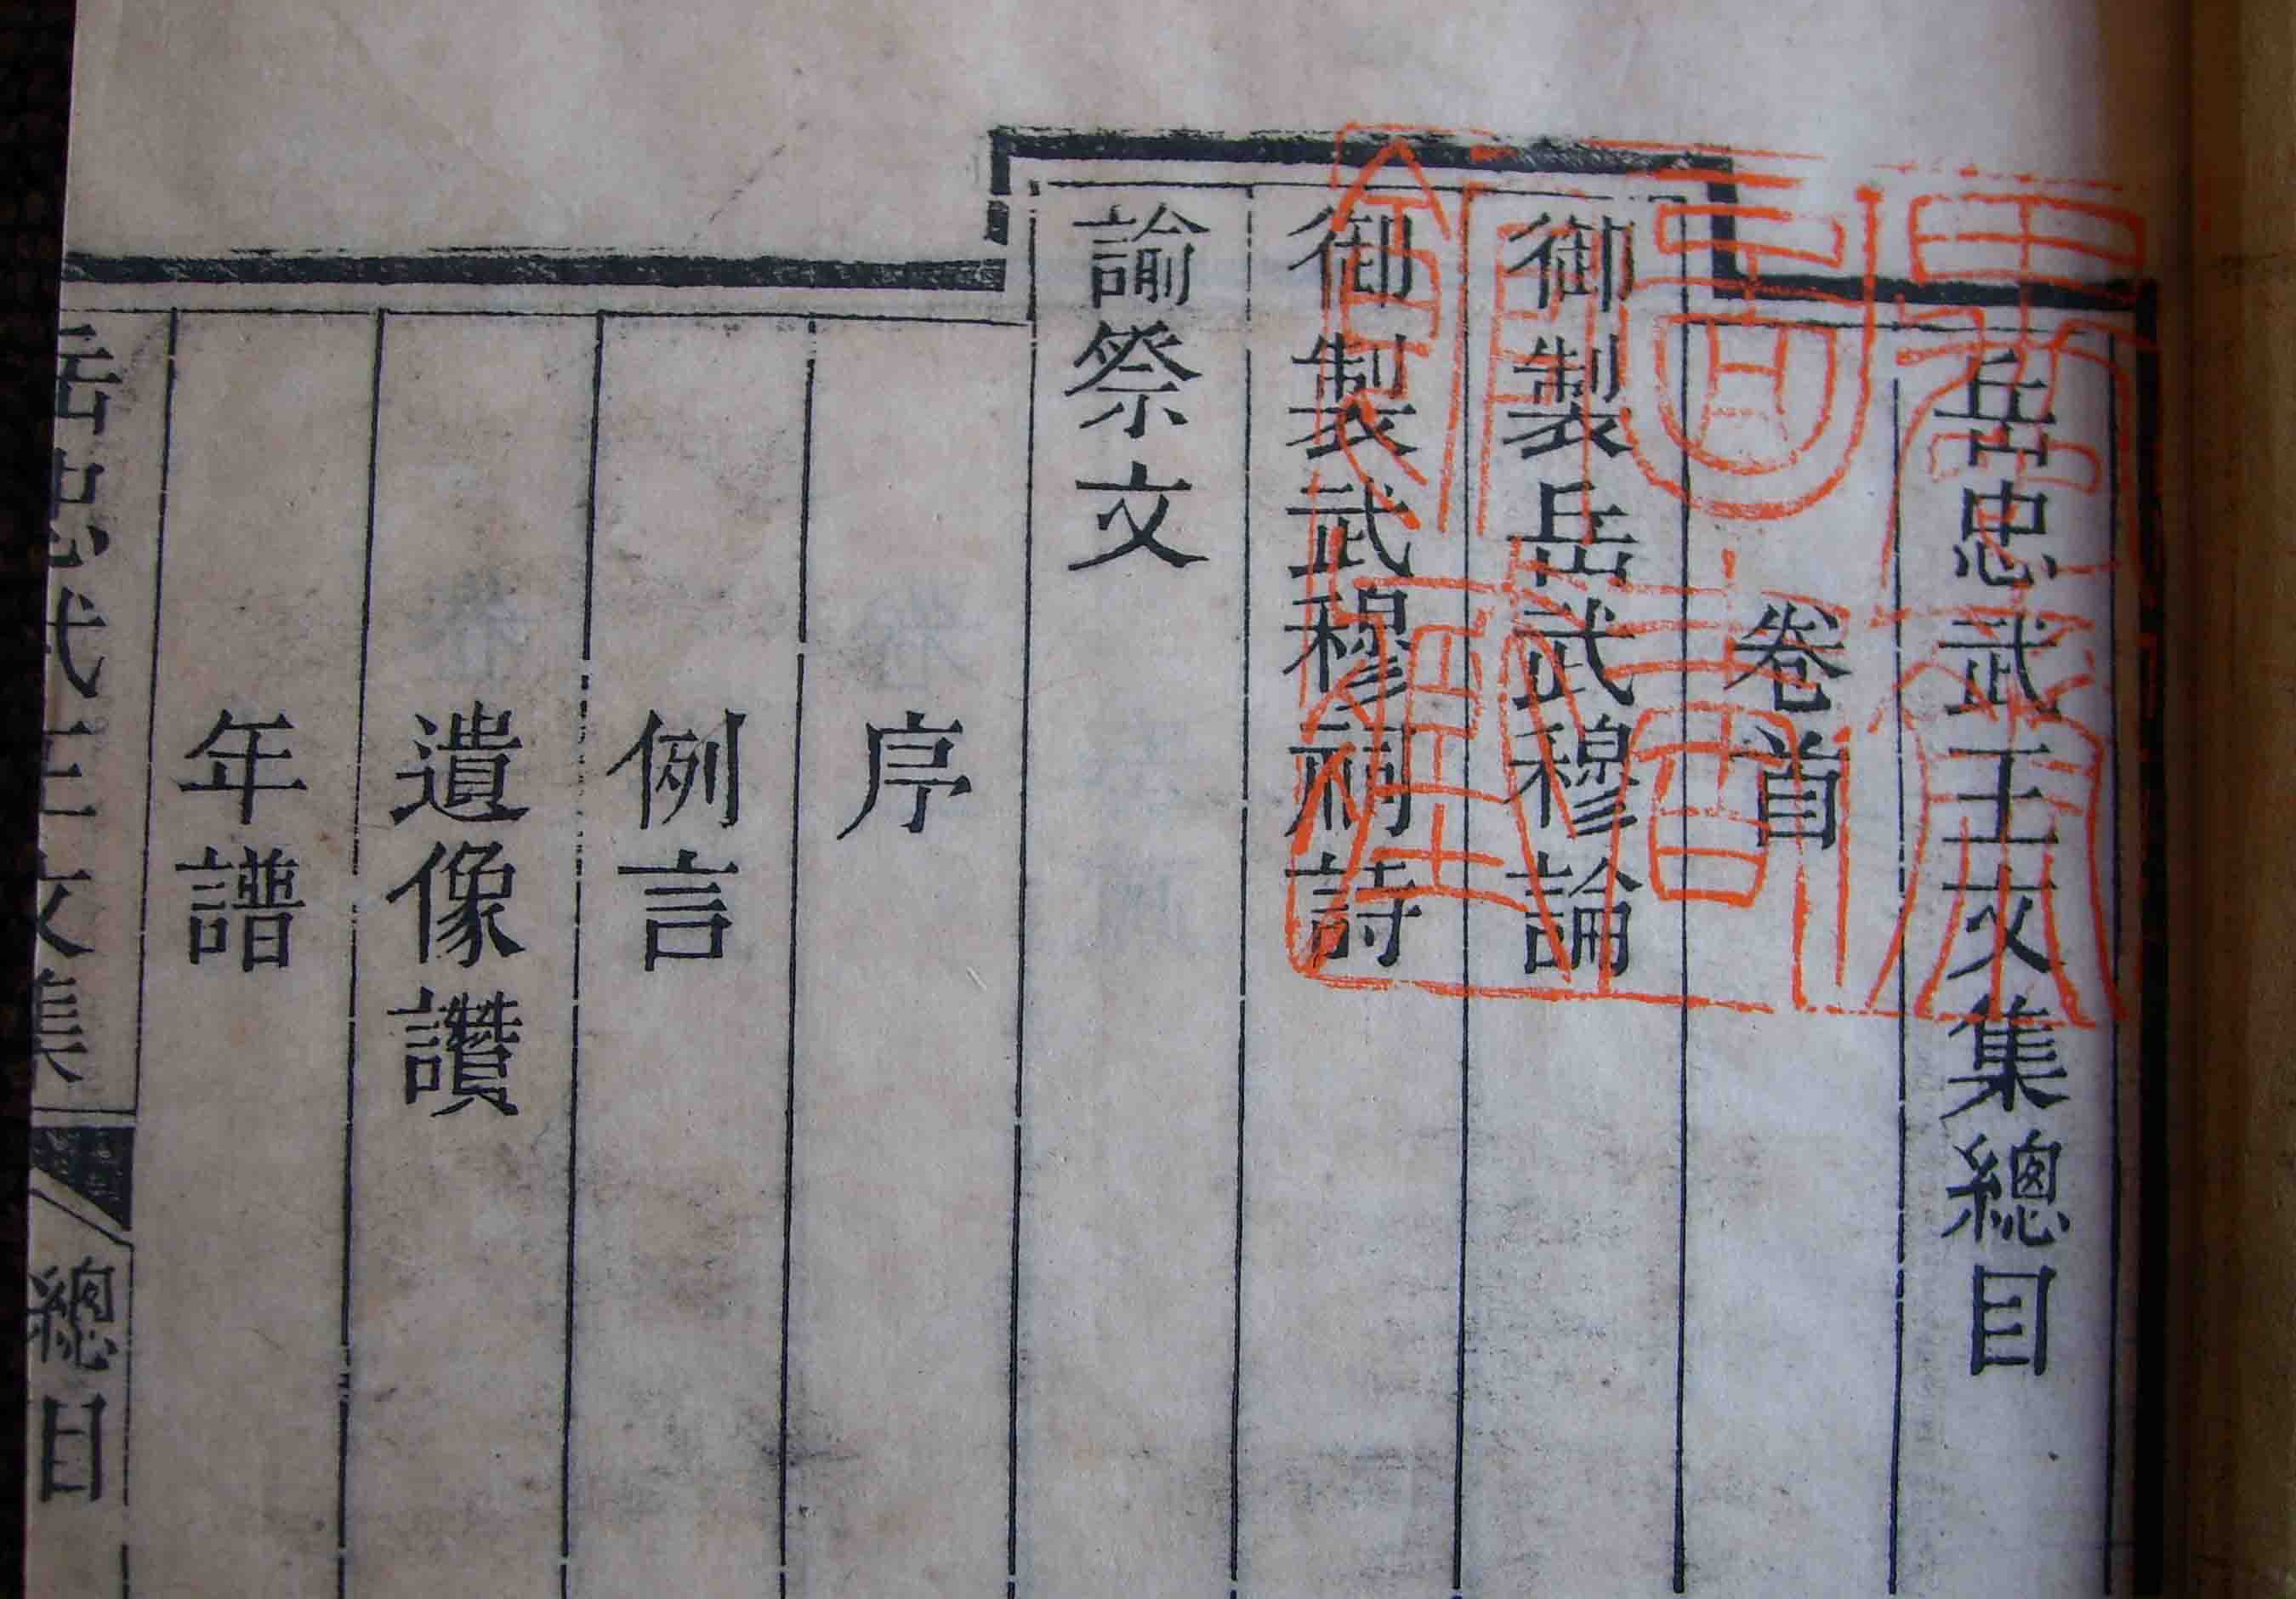 岳忠武王文集總目
卷首
御製岳武穆論
御製武穆祠詩
諭祭文
序
例言
遺像讚
年譜
岳忠武王文集
總目